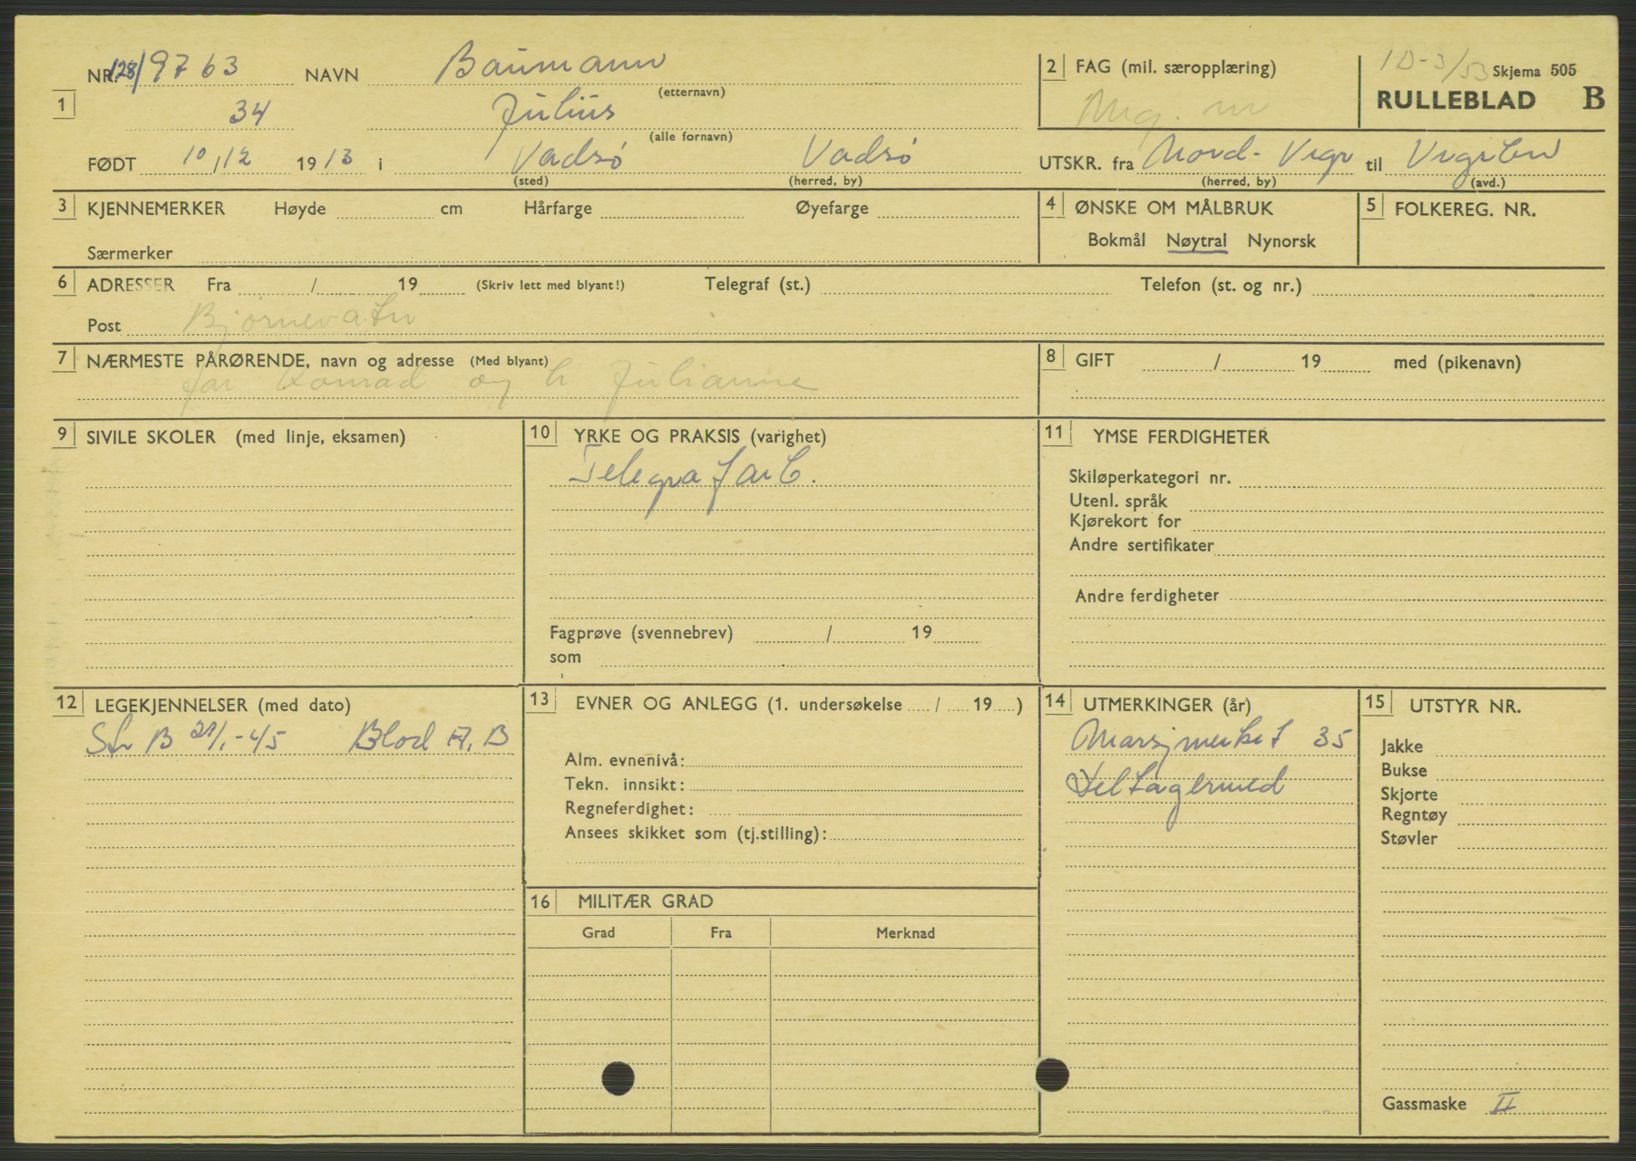 NR. 128/9763 NAVN Baumann 2 FAG (mil. særopplæring) ID-3/53 Skjema 505
(etternavn) RULLEBLAD B
1 34 Julius Mg.
(alle fornavn)
FØDT 10/12 1913 i Vadsø Vadsø UTSKR. fra Nord- til
(sted) (herred, by) (herred, by) (avd.)
3 KJENNEMERKER Høyde cm Hårfarge Øyefarge 4 ØNSKE OM MÅLBRUK 5 FOLKEREG. NR.
Bokmål Nøytral Nynorsk
Særmerker
6 ADRESSER Fra / 19 (Skriv lett med blyant!) Telegraf (st.) Telefon (st. og nr.)
Post Bjørnevatn
7 NÆRMESTE PÅRØRENDE, navn og adresse (Med blyant) 8 GIFT / 19 med (pikenavn)
far Konrad og h Julianne
9 SIVILE SKOLER (med linje, eksamen) 10 YRKE OG PRAKSIS (varighet) 11 YMSE FERDIGHETER
Telegrafarb.
Skiløperkategori nr.
Utenl. språk
Kjørekort for
Andre sertifikater
Andre ferdigheter
Fagprøve (svennebrev) / 19
som
12 LEGEKJENNELSER (med dato) 13 EVNER OG ANLEGG (1. undersøkelse / 19 ) 14 UTMERKINGER (år) 15 UTSTYR NR.
Str B 29/1-45 Blod A, B Marsjmerket 35
Deltagermed
Jakke
Bukse
Skjorte
Regntøy
Støvler
Alm. evnenivå:
Tekn. innsikt:
Regneferdighet:
Ansees skikket som (tj.stilling):
16 MILITÆR GRAD
Grad Fra Merknad
Gassmaske II